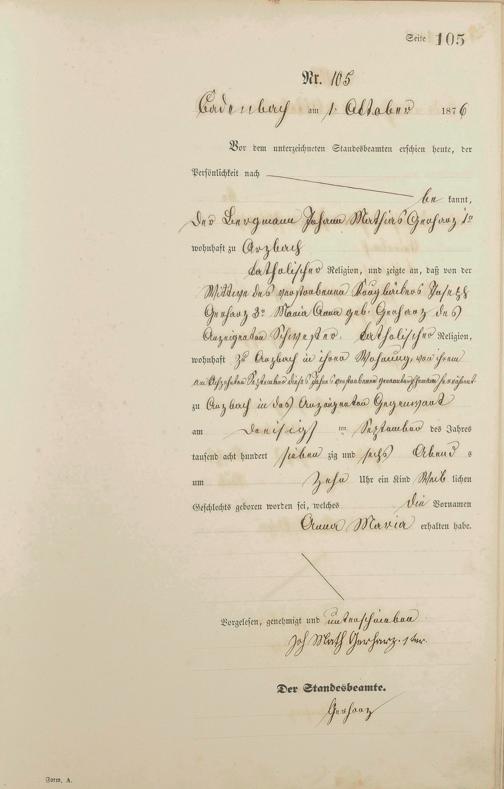 Seite 105
Nr. 105
Cadenbach am 1. Oktober 1876
Vor dem unterzeichneten Standesbeamten erschien heute, der
Persönlichkeit nach
be kannt,
der Bergmann Johann Mathias Gerharz 1r
wohnhaft zu Arzbach
katholischer Religion, und zeigte an, daß von der
Wittwe des verstorbenen Joseph
Gerharz 3r Maria Anna geb. Gerharz des
Anzeigenden Schwester, katholischer Religion,
wohnhaft zu Arzbach in ihrer Wohnung, von ihrem
am September dieses Jahres verstorbenen genannten Ehemann
zu Arzbach in des Anzeigenden Gegenwart
am dreisigsten September des Jahres
tausend acht hundert sieben zig und sechs Abend s
um zehn Uhr ein Kind Weib lichen
Geschlechts geboren worden sei, welches die Vornamen
Anna Maria erhalten habe.
Vorgelesen, genehmigt und unterschrieben
Joh Math Gerharz 1ter
Der Standesbeamte.
Gerharz
Form. A.